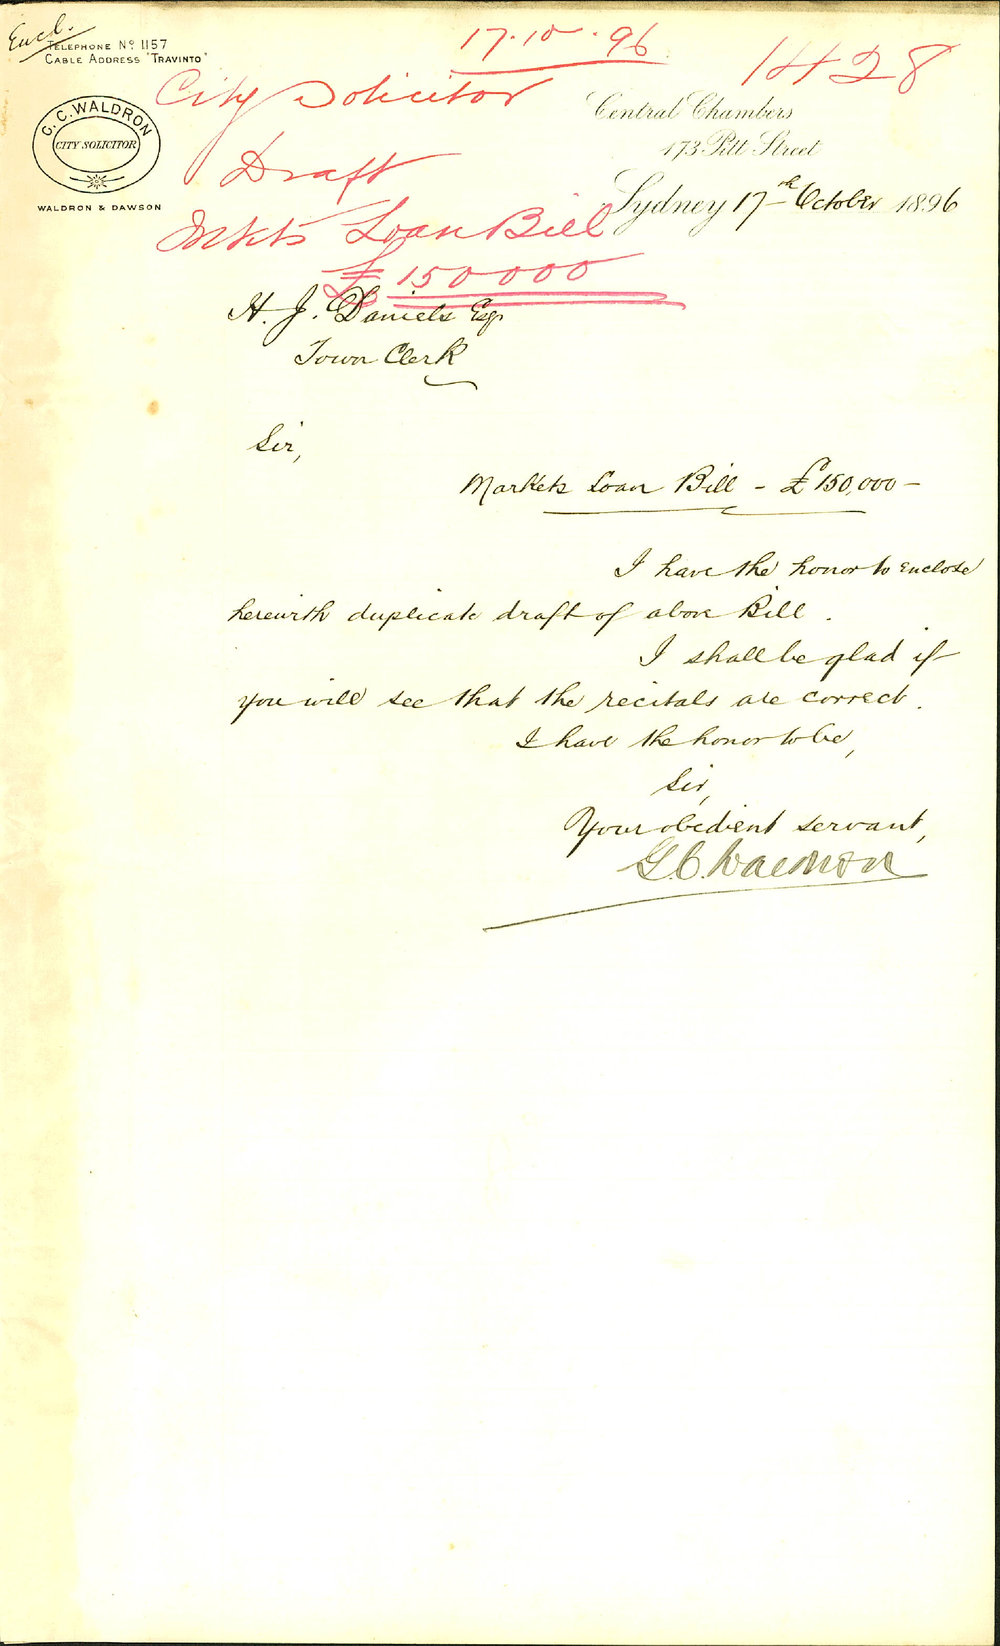 Encl.
TELEPHONE No 1157
CABLE ADDRESS "TRAVINTO"
C. C. WALDRON
CITY SOLICITOR
WALDRON & DAWSON
17.10.96
1428
City Solicitor
Draft
Mkts Loan Bill
£150000
Central Chambers
173 Pitt Street
Sydney 17th October 1896
H. J. Daniels Esq
Town Clerk
Sir,
Markets Loan Bill - £150,000 -
I have the honor to enclose
herewith duplicate draft of above Bill.
I shall be glad if
you will see that the recitals are correct.
I have the honor to be,
Sir,
Your obedient servant,
G. C. Waldron